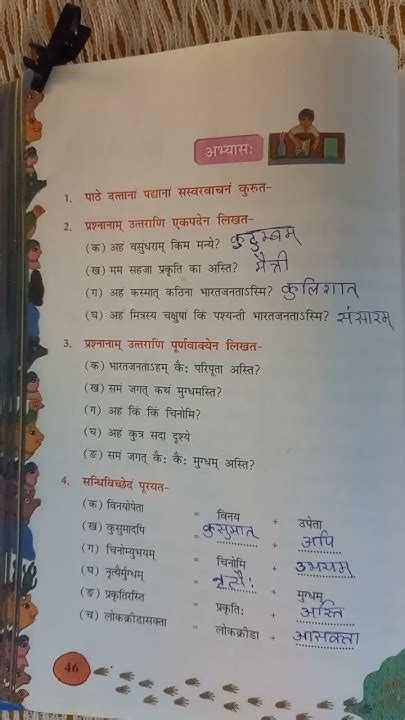 अभ्यासः
1. पाठे दत्तानां पद्यानां सस्वरवाचनं कुरुत-
2. प्रश्नानाम् उत्तराणि एकपदेन लिखत-
(क) अहं वसुंधराम् किम मन्ये? कुटुम्बम्
(ख) मम सहजा प्रकृति का अस्ति? मैत्री
(ग) अहं कस्मात् कठिना भारतजनताऽस्मि? कुलिशात्
(घ) अहं मित्रस्य चक्षुषां किं पश्यन्ती भारतजनताऽस्मि? संसारम्
3. प्रश्नानाम् उत्तराणि पूर्णवाक्येन लिखत-
(क) भारतजनताऽहम् कैः परिपूता अस्ति?
(ख) समं जगत् कथं मुग्धमस्ति?
(ग) अहं किं किं चिनोमि?
(घ) अहं कुत्र सदा दृश्ये
(ङ) समं जगत् कैः कैः मुग्धम् अस्ति?
4. सन्धिविच्छेदं पूरयत-
(क) विनयोपेता = विनय + उपेता
(ख) कुसुमादपि = कुसुमात् + अपि
(ग) चिनोम्युभयम् = चिनोमि + उभयम्
(घ) नृत्यैर्मुग्धम् = नृत्यैः + मुग्धम्
(ङ) प्रकृतिरस्ति = प्रकृतिः + अस्ति
(च) लोकक्रीडासक्ता = लोकक्रीडा + आसक्ता
46